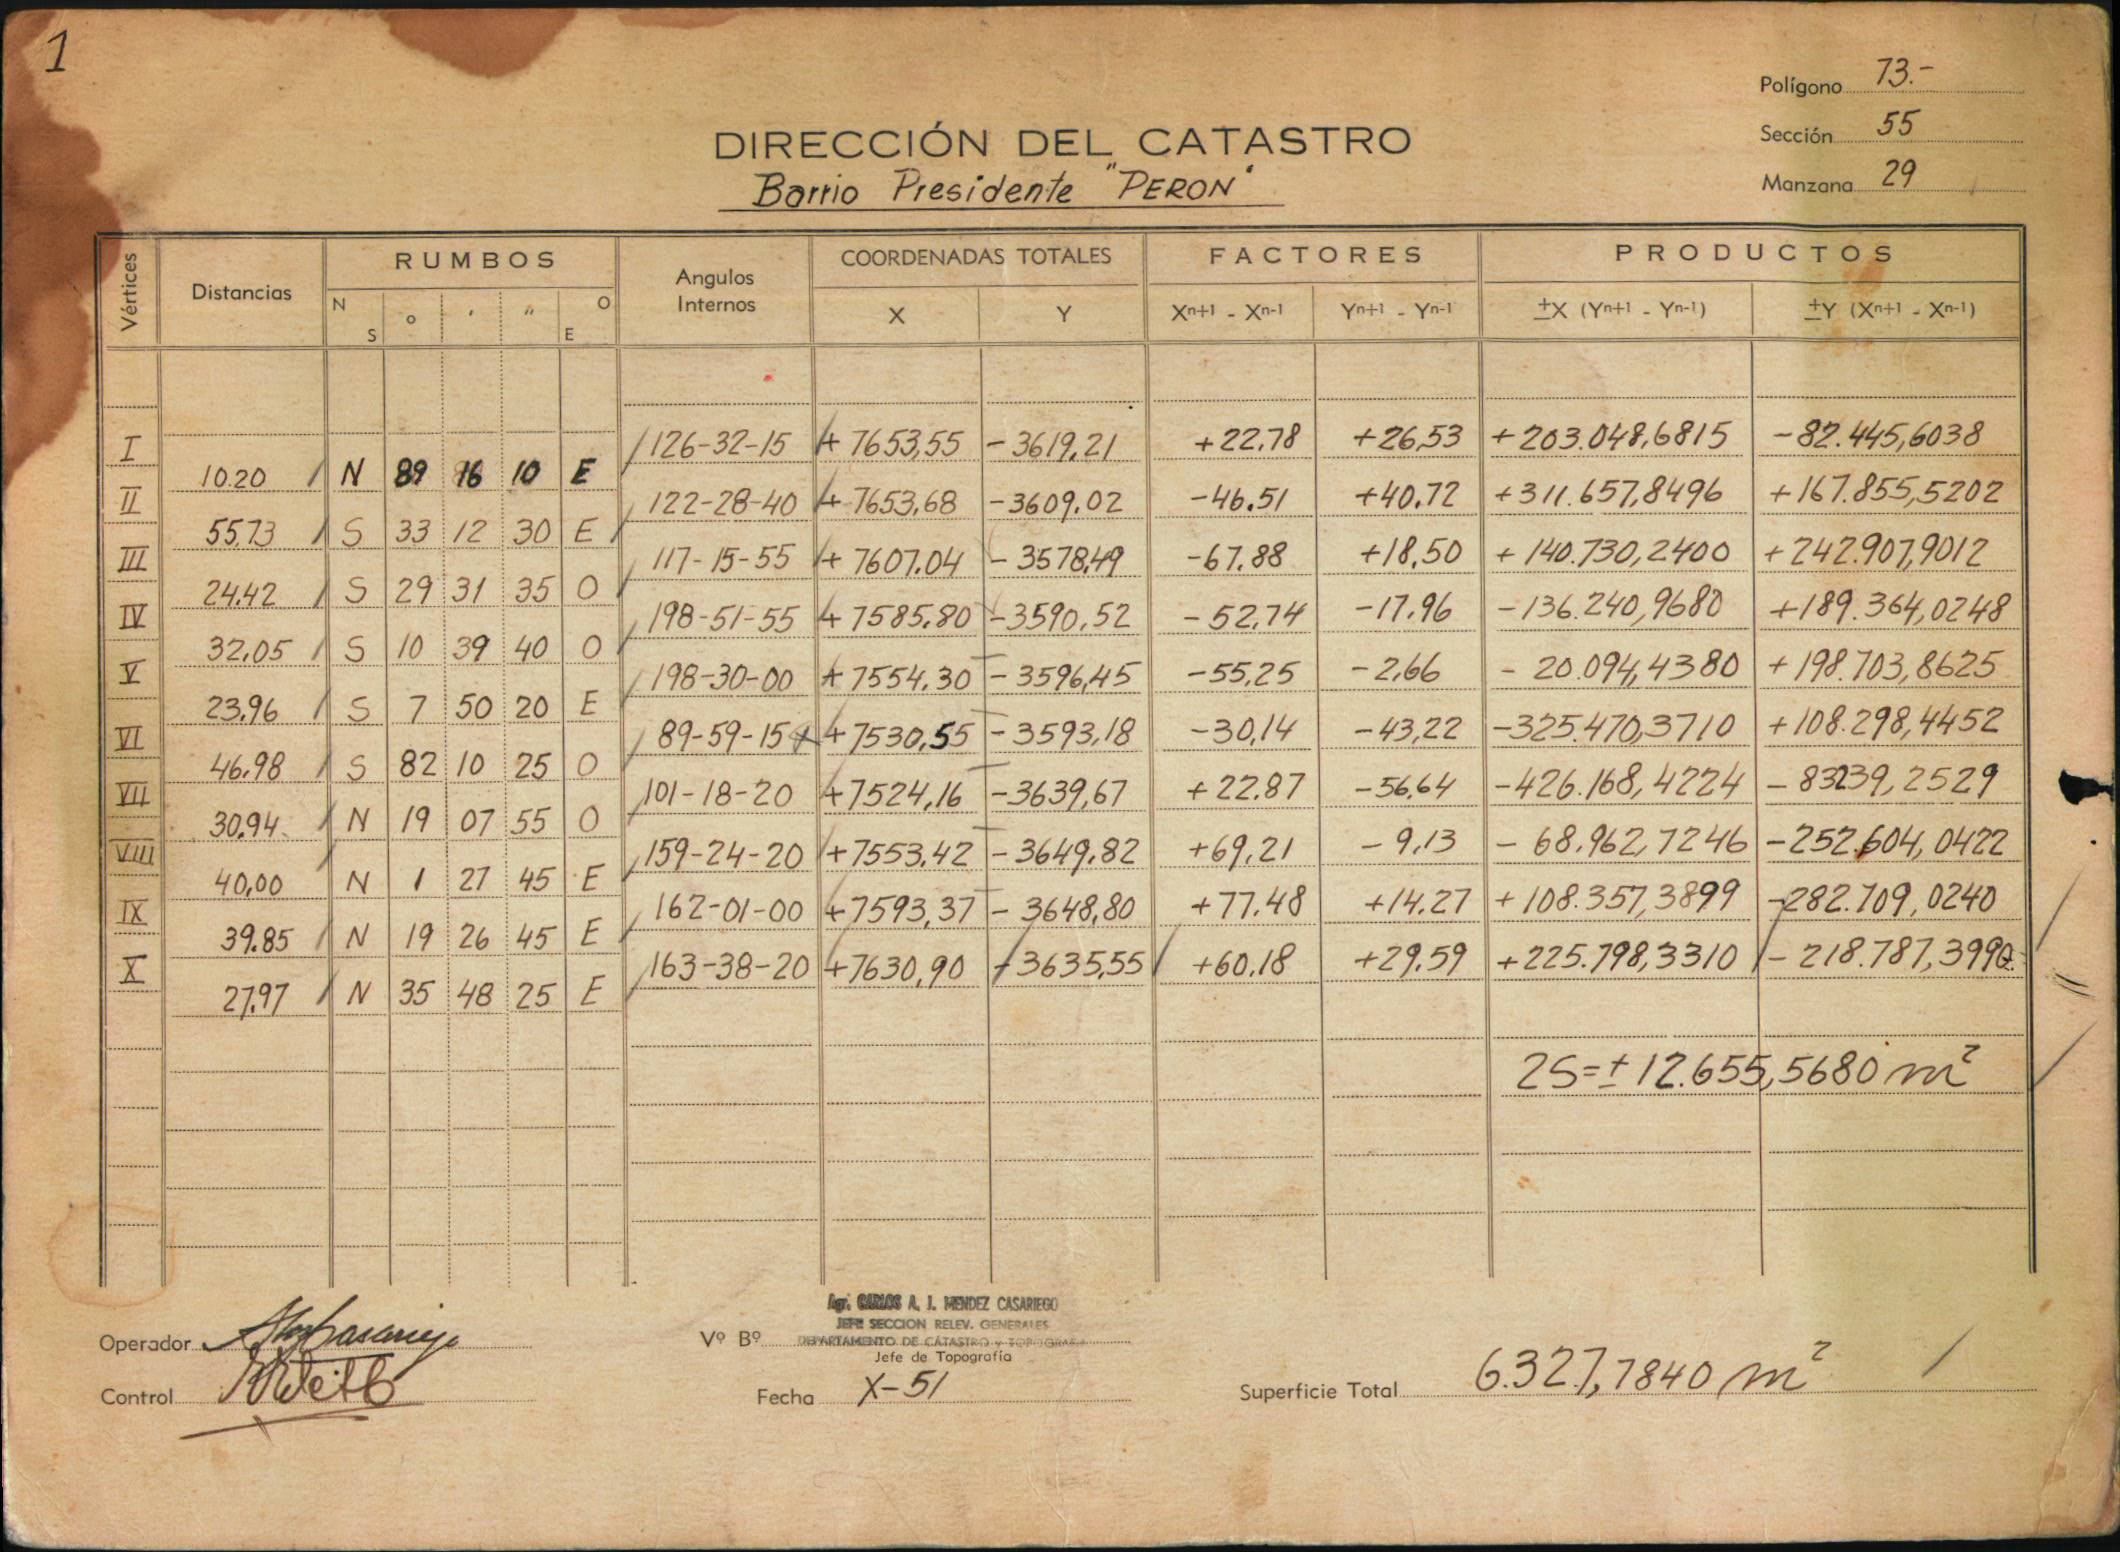 1
Polígono 73.-
Sección 55
Manzana 29
DIRECCIÓN DEL CATASTRO
Barrio Presidente "PERON"
Vértices Distancias RUMBOS Angulos Internos COORDENADAS TOTALES FACTORES PRODUCTOS
N S o ' " O E X Y Xn+1 - Xn-1 Yn+1 - Yn-1 ±X (Yn+1 - Yn-1) ±Y (Xn+1 - Xn-1)
I 126-32-15 + 7653,55 - 3619,21 +22,78 +26,53 +203.048,6815 -82.445,6038
10.20 N 89 16 10 E
II 122-28-40 + 7653,68 -3609,02 -46.51 +40.72 +311.657,8496 +167.855,5202
55,73 S 33 12 30 E
III 117-15-55 + 7607.04 - 3578,49 -67.88 +18,50 + 140.730,2400 +242.907,9012
24.42 S 29 31 35 O
IV 198-51-55 + 7585.80 -3590,52 -52,74 -17,96 -136.240,9680 +189.364,0248
32,05 S 10 39 40 O
V 198-30-00 + 7554,30 - 3596,45 -55,25 -2,66 - 20.094,4380 + 198.703,8625
23,96 S 7 50 20 E
VI 89-59-15 +7530,55 - 3593,18 -30,14 -43,22 -325.470,3710 +108.298,4452
46,98 S 82 10 25 O
VII 101-18-20 +7524,16 -3639,67 +22.87 -56,64 -426.168,4224 - 83239,2529
30,94 N 19 07 55 O
VIII 159-24-20 +7553,42 - 3649,82 +69,21 - 9,13 - 68.962,7246 -252.604,0422
40,00 N 1 27 45 E
IX 162-01-00 +7593,37 - 3648,80 +77.48 +14.27 +108.357,3899 -282.709,0240
39.85 N 19 26 45 E
X 163-38-20 +7630,90 -3635,55 +60,18 +29,59 +225.798,3310 - 218.787,3990
27,97 N 35 48 25 E
2S=± 12.655,5680 m²
Agr. CARLOS A. J. MENDEZ CASARIEGO
JEFE SECCION RELEV. GENERALES
Operador Vº Bº DEPARTAMENTO DE CATASTRO Y TOPOGRAFIA
Jefe de Topografía
Control Fecha X-51 Superficie Total 6.327,7840 m²